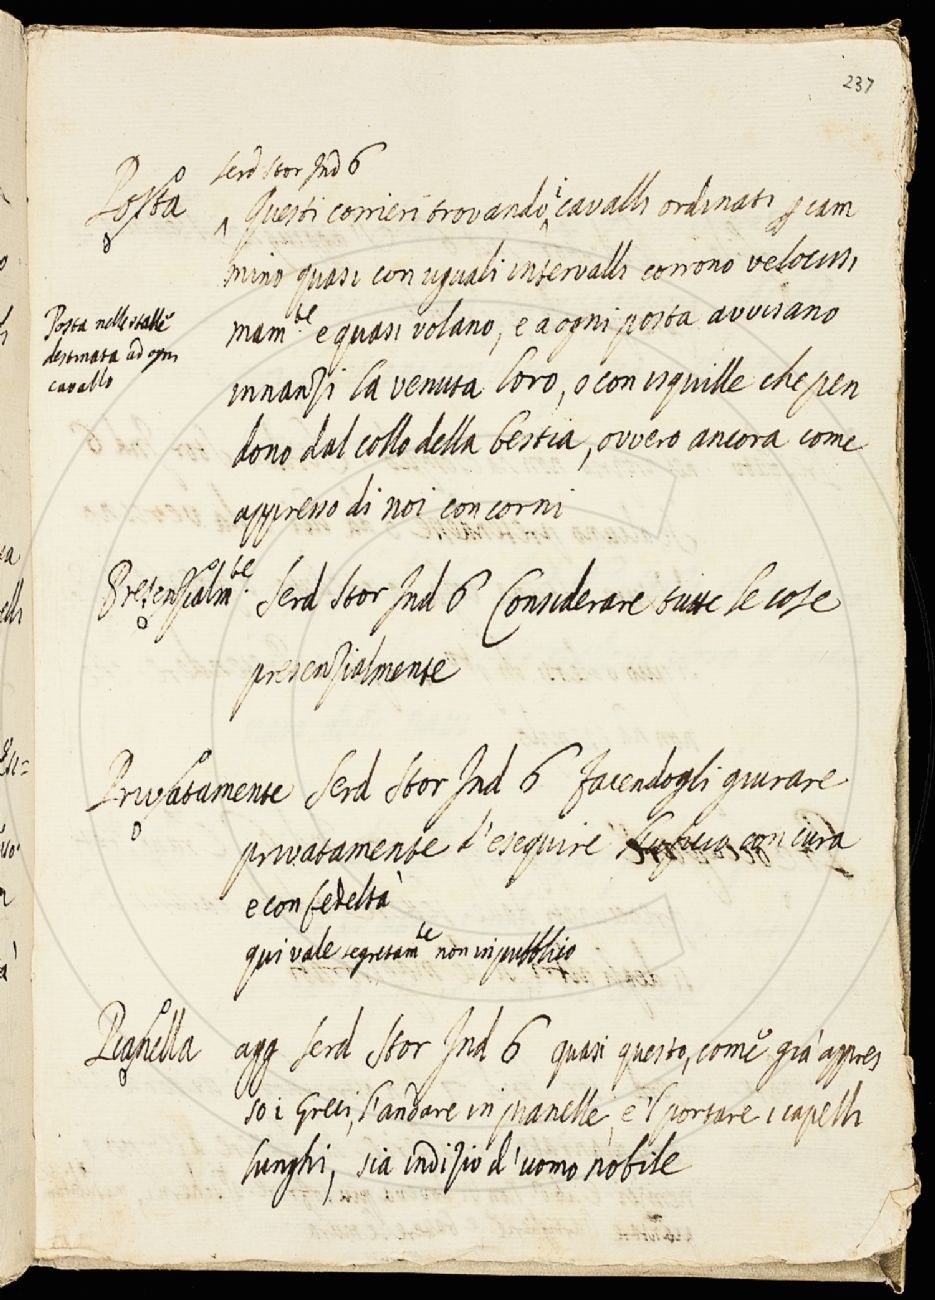 237
Posta Serd Stor Ind 6
Questi corrieri trovando i cavalli ordinati p cam
mino quasi con uguali intervalli corrono velocissi
mam.te e quasi volano, e a ogni posta avvisano
Posta nelle stalle
destinata ad ogni
cavallo
innanzi la venuta loro, o con isquille che pen
dono dal collo della bestia, ovvero ancora come
appresso di noi con corni
Presenzialm.te Serd Stor Ind 6 Considerare tutte le cose
presenzialmente
Privatamente Serd Stor Ind 6 facendogli giurare
privatamente d'eseguire con cura
e con fedeltà
qui vale segretam.te non in pubblico
Pianella agg Serd Stor Ind 6 quasi questo, come già appres
so i Greci, l'andare in pianelle, e 'l portare i capelli
lunghi, sia indizio d'uomo nobile